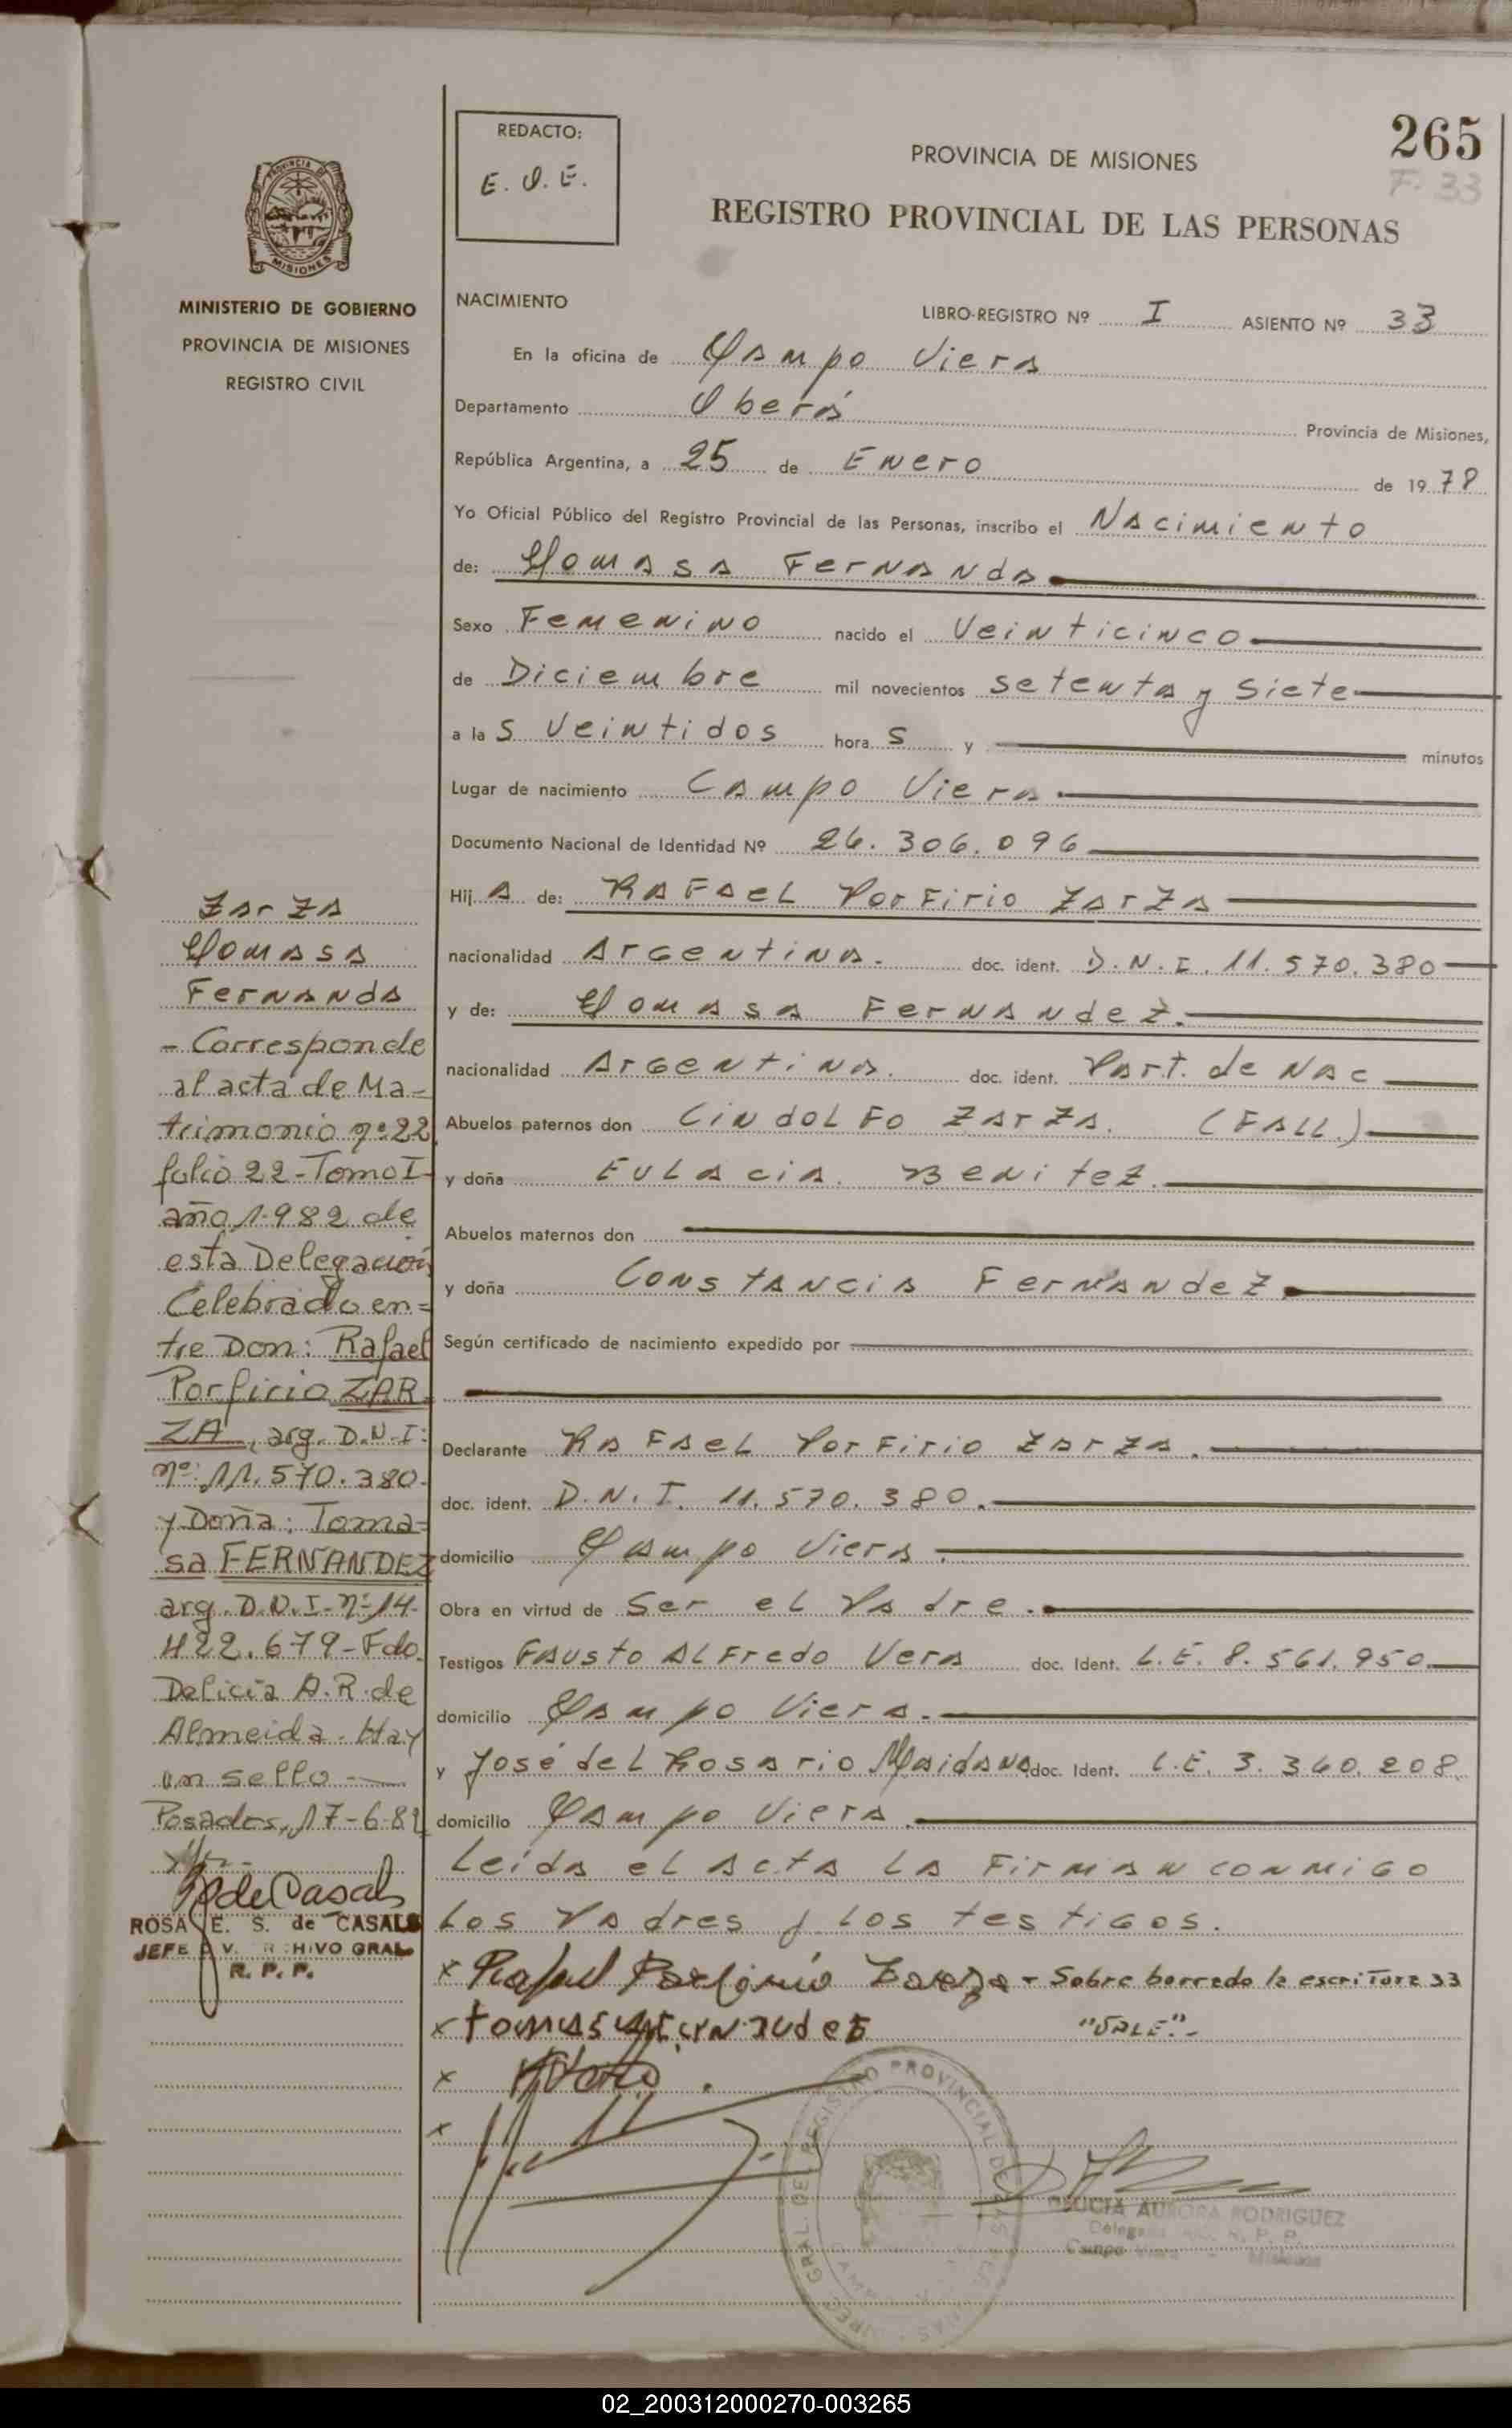 265
F. 33
REDACTO:
E. O. E.
PROVINCIA DE MISIONES
REGISTRO PROVINCIAL DE LAS PERSONAS
PROVINCIA
MISIONES
MINISTERIO DE GOBIERNO
PROVINCIA DE MISIONES
REGISTRO CIVIL
NACIMIENTO
LIBRO-REGISTRO Nº I ASIENTO Nº 33
En la oficina de Campo Viera
Departamento Oberá Provincia de Misiones,
República Argentina, a 25 de Enero de 1978
Yo Oficial Público del Registro Provincial de las Personas, inscribo el Nacimiento
de: Tomasa Fernanda
Sexo Femenino nacido el Veinticinco
de Diciembre mil novecientos setenta y siete
a las Veintidos horas y minutos
Lugar de nacimiento Campo Viera
Documento Nacional de Identidad Nº 26.306.096
Hija de: Rafael Porfirio Zarza
nacionalidad Argentina. doc. ident. D.N.I. 11.570.380
y de: Tomasa Fernandez.
nacionalidad Argentina. doc. ident. Part. de Nac
Abuelos paternos don Lindolfo Zarza. (Fall.)
y doña Eulacia. Benitez.
Abuelos maternos don
y doña Constancia Fernandez.
Según certificado de nacimiento expedido por
Declarante Rafael Porfirio Zarza.
doc. ident. D.N.I. 11.570.380.
domicilio Campo Viera.
Obra en virtud de Ser el Padre.
Testigos Fausto Alfredo Vera doc. Ident. L.E. 8.561.950.
domicilio Campo Viera.
y José del Rosario Maidana doc. Ident. L.E. 3.340.208.
domicilio Campo Viera.
Leída el acta la firman conmigo
los Padres y los testigos.
x Rafael Porfirio Zarza - Sobre borrado la escritura 33
x "VALE".-
x
x
Zarza
Tomasa
Fernanda
- Corresponde
al acta de Ma-
trimonio nº 22
folio 22 - Tomo I
año 1.982 de
esta Delegación
Celebrado en=
tre Don: Rafael
Porfirio ZAR
ZA, arg. D.N.I:
nº: 11.570.380.
y Doña: Toma=
sa FERNANDEZ
arg. D.N.I. nº 14.
422.679 - Fdo.
Delicia A.R. de
Almeida. Hay
un sello -
Posadas, 17-6-82
R de Casals
ROSA E. S. de CASALS
JEFE DIV. ARCHIVO GRAL
R. P. P.
DELICIA AURORA RODRIGUEZ
Campo Viera - Misiones
02_200312000270-003265